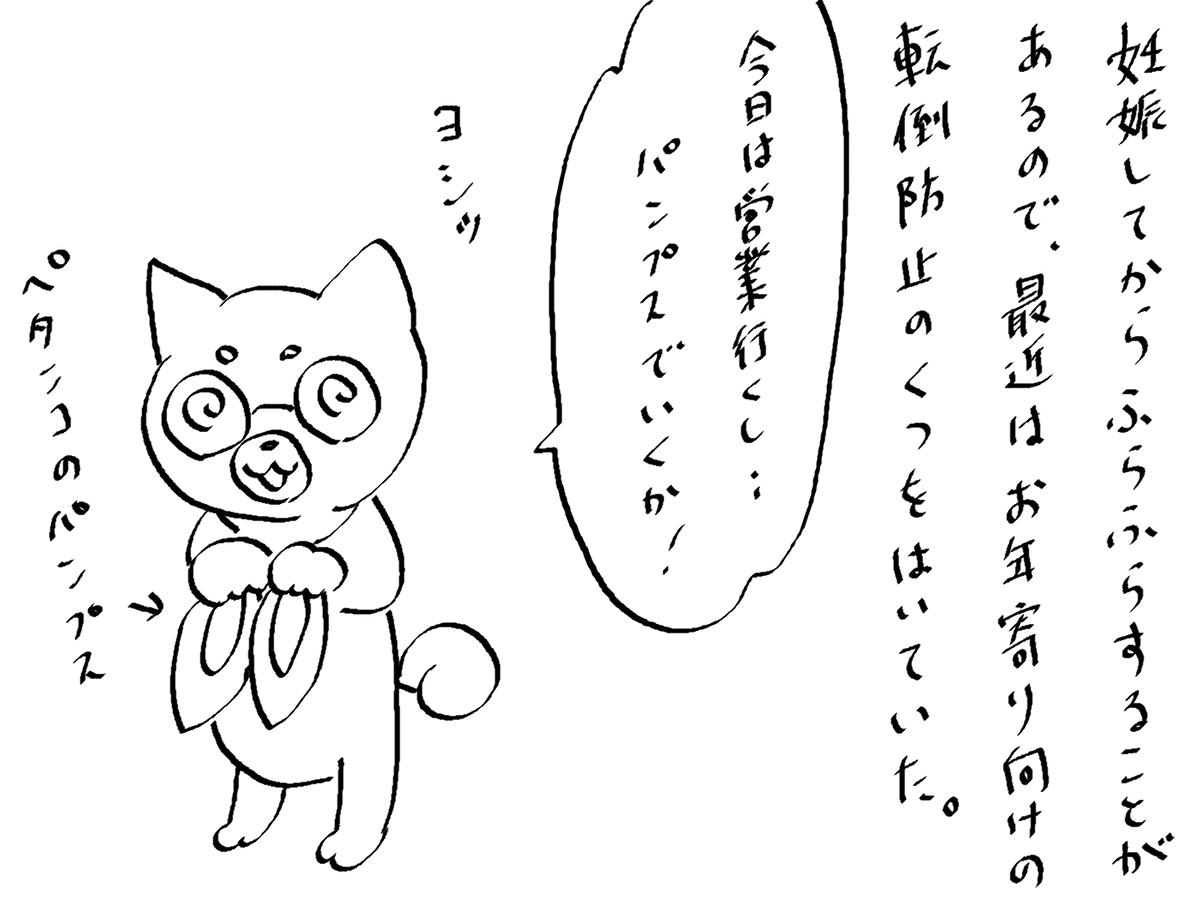 妊娠してからふらふらすることが
あるので、最近はお年寄り向けの
転倒防止のくつをはいていた。
今日は営業行くし…
パンプスでいくか!
ヨシッ
ペタンコのパンプス